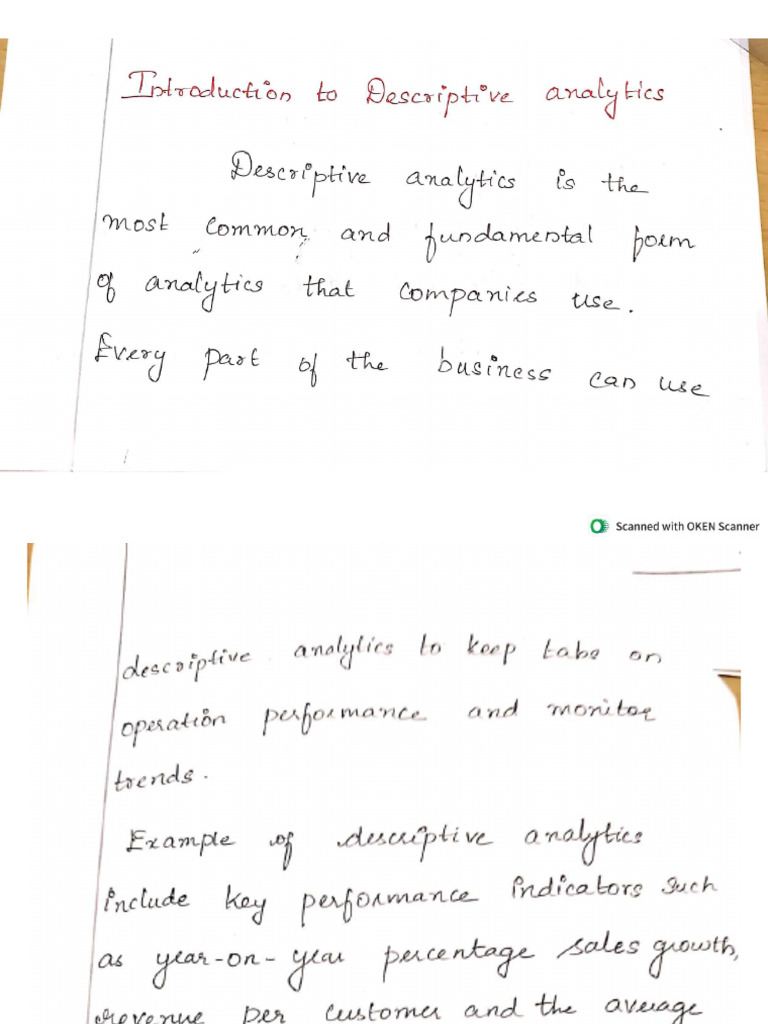 Introduction to Descriptive analytics
Descriptive analytics is the
most common, and fundamental form
of analytics that companies use.
Every part of the business can use
Scanned with OKEN Scanner
descriptive analytics to keep tabs on
operation performance and monitor
trends.
Example of descriptive analytics
include key performance indicators such
as year-on-year percentage sales growth,
revenue per customer and the average